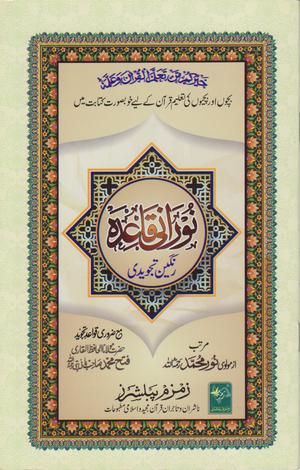 خيركم من تعلم القرآن وعلمه
بچوں اور بچیوں کی تعلیم قرآن کے لیے خوبصورت کتابت میں
نورانی قاعدہ
رنگین تجویدی
مع ضروری قواعد تجوید
مرتب
از مولوی نور محمد
فتح محمد صاحب
زمزم پبلشرز
ناشران و تاجران قرآن مجید و اسلامی مطبوعات